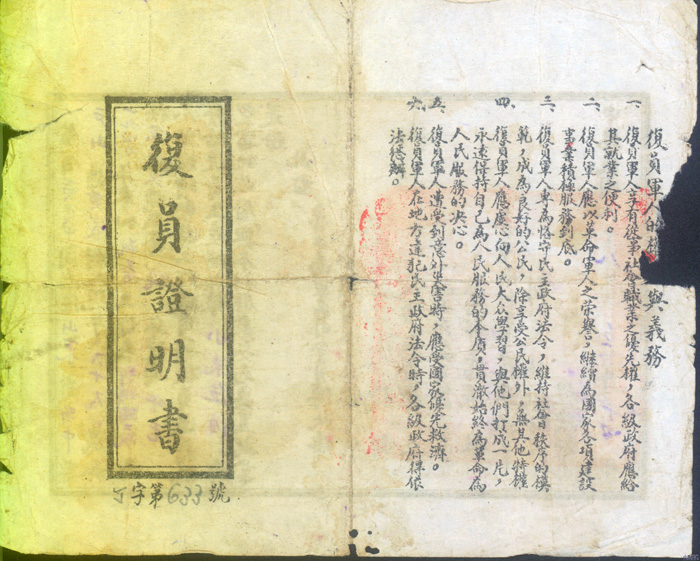 復員軍人的與義務
一、復員軍人享有從事社會職業之優先權，各級政府應給
其就業之便利。
二、復員軍人應以革命軍人之榮譽，繼續為國家各項建設
事業積極服務到底。
三、復員軍人應為恪守民主政府法令，維持社會秩序的模
範，成為良好的公民，除享受公民權外，無其他特權
四、復員軍人應虛心向人民大众學習，與他們打成一片，
永遠保持自己為人民服務的本質，貫澈始終為革命為
人民服務的决心。
五、復員軍人遭受到意外災害時，應受國家優先救濟。
六、復員軍人在地方違犯民主政府法令時，各級政府得依
法懲辦。
復員證明書
丁字第633號